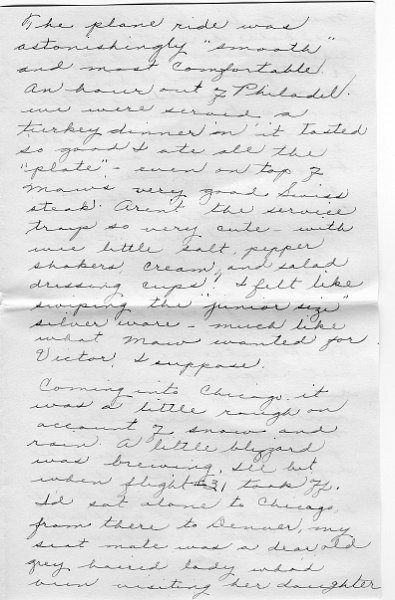 The plane ride was
astonishingly "smooth"
and most comfortable.
An hour out of Philadel.
we were served a
turkey dinner 'n it tasted
so good I ate all the
"plate" - even on top of
Maws very good Swiss
steak. Arent the service
trays so very cute - with
wee little salt, pepper
shakers, cream, and salad
dressing cups! I felt like
swiping the "junior size"
silver ware - much like
what Maw wanted for
Victor, I suppose.
Coming into Chicago, it
was a little rough on
account of snow and
rain. A little blizzard
was brewing,
when flight #31 took off.
I'd sat alone to Chicago,
from there to Denver, my
seat mate was a dear old
grey haired lady whod
been visiting her daughter